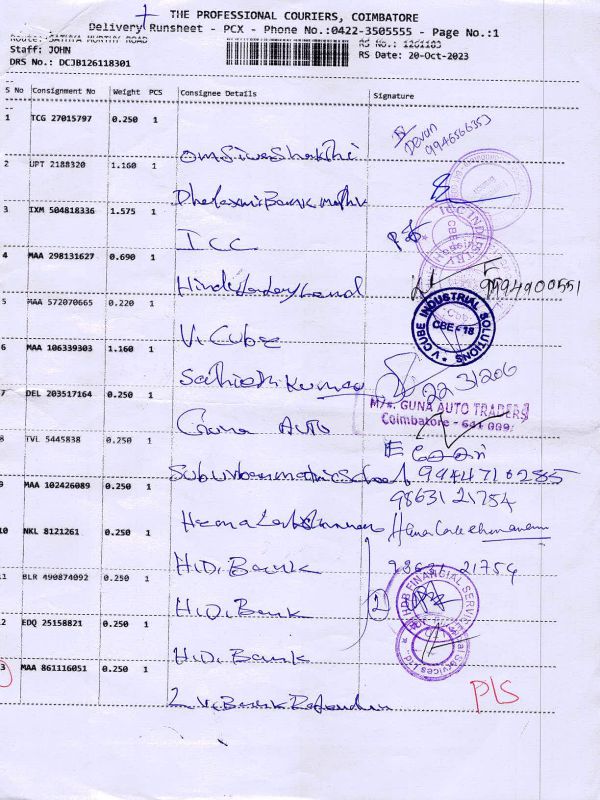 THE PROFESSIONAL COURIERS, COIMBATORE
Delivery Runsheet - PCX - Phone No.:0422-3505555 - Page No.:1
Route: SATHYA MURTHY ROAD
RS No.: 1261183
Staff: JOHN
RS Date: 20-Oct-2023
DRS No.: DCJB126118301
S No Consignment No Weight PCS Consignee Details Signature
1 TCG 27015797 0.250 1
Devan
9946566353
OmSivaShakthi
2 UPT 2188320 1.160 1
Dhalaxmi Bank
3 IXM 504818336 1.575 1
ICC
ICC INDUSTRY
CBE
4 MAA 298131627 0.690 1
9994900551
5 MAA 572070665 0.220 1
V. Cube
V CUBE INDUSTRIAL SOLUTIONS
CBE - 18
6 MAA 106339303 1.160 1
Sathish Kumar
223/206
7 DEL 203517164 0.250 1
Guna Auto
M/s. GUNA AUTO TRADERS
Coimbatore - 641 009.
8 TVL 5445838 0.250 1
9944710285
9 MAA 102426089 0.250 1
9863121754
10 NKL 8121261 0.250 1
H.D. Bank
11 BLR 490874092 0.250 1
H.D. Bank
HDB FINANCIAL SERVICES
12 EDQ 25158821 0.250 1
H.D. Bank
13 MAA 861116051 0.250 1
PLS